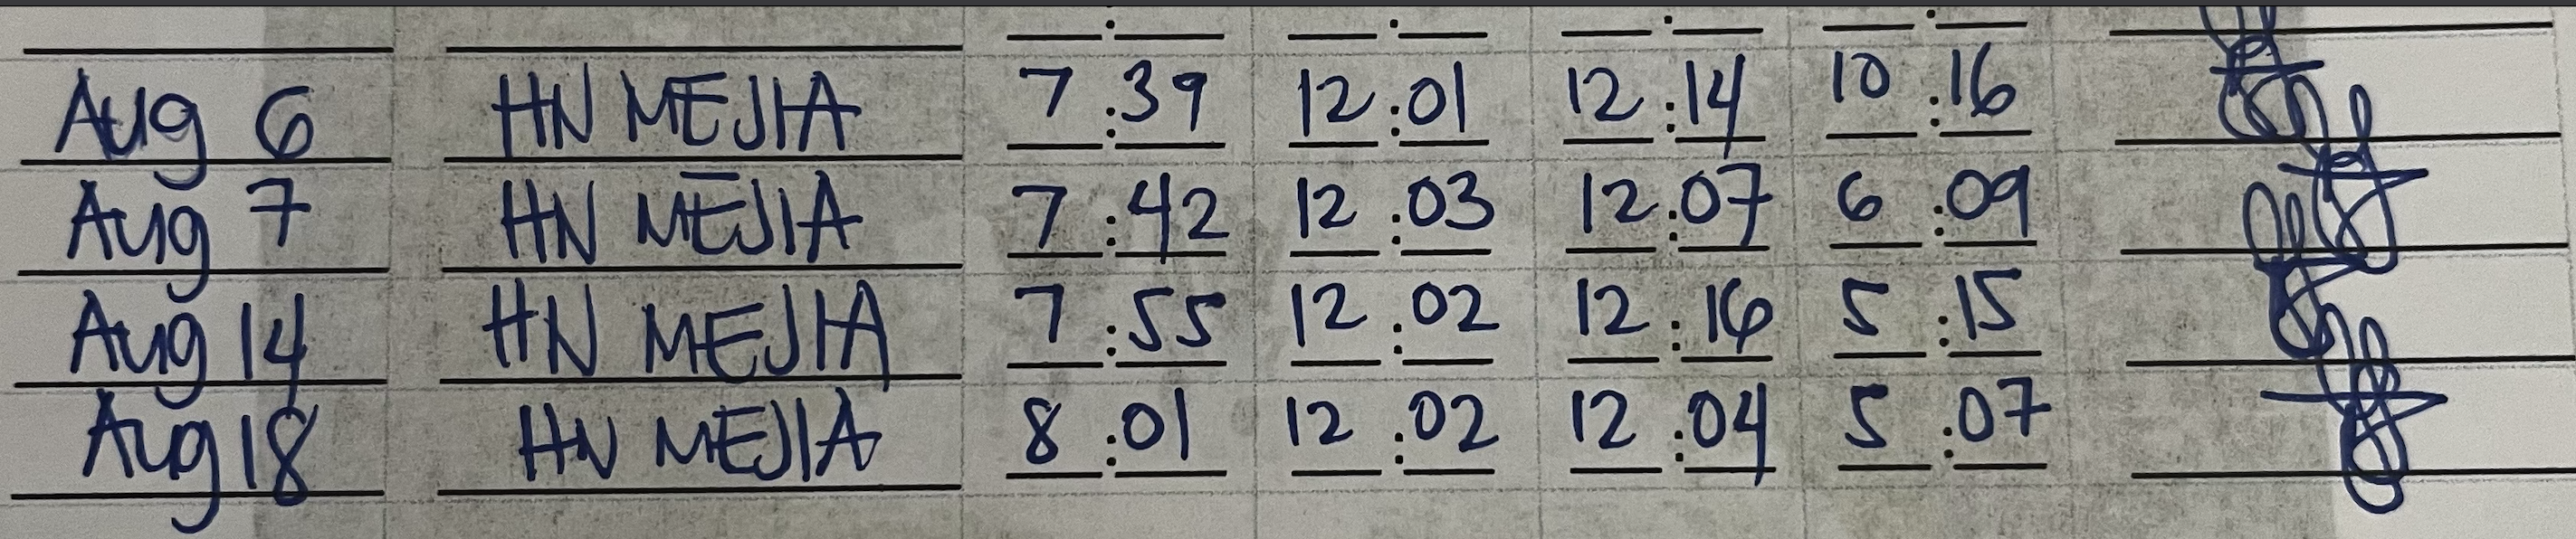 Aug 6 HN MEJIA 7:39 12:01 12:14 10:16
Aug 7 HN MEJIA 7:42 12:03 12:07 6:09
Aug 14 HN MEJIA 7:55 12:02 12:16 5:15
Aug 18 HN MEJIA 8:01 12:02 12:04 5:07